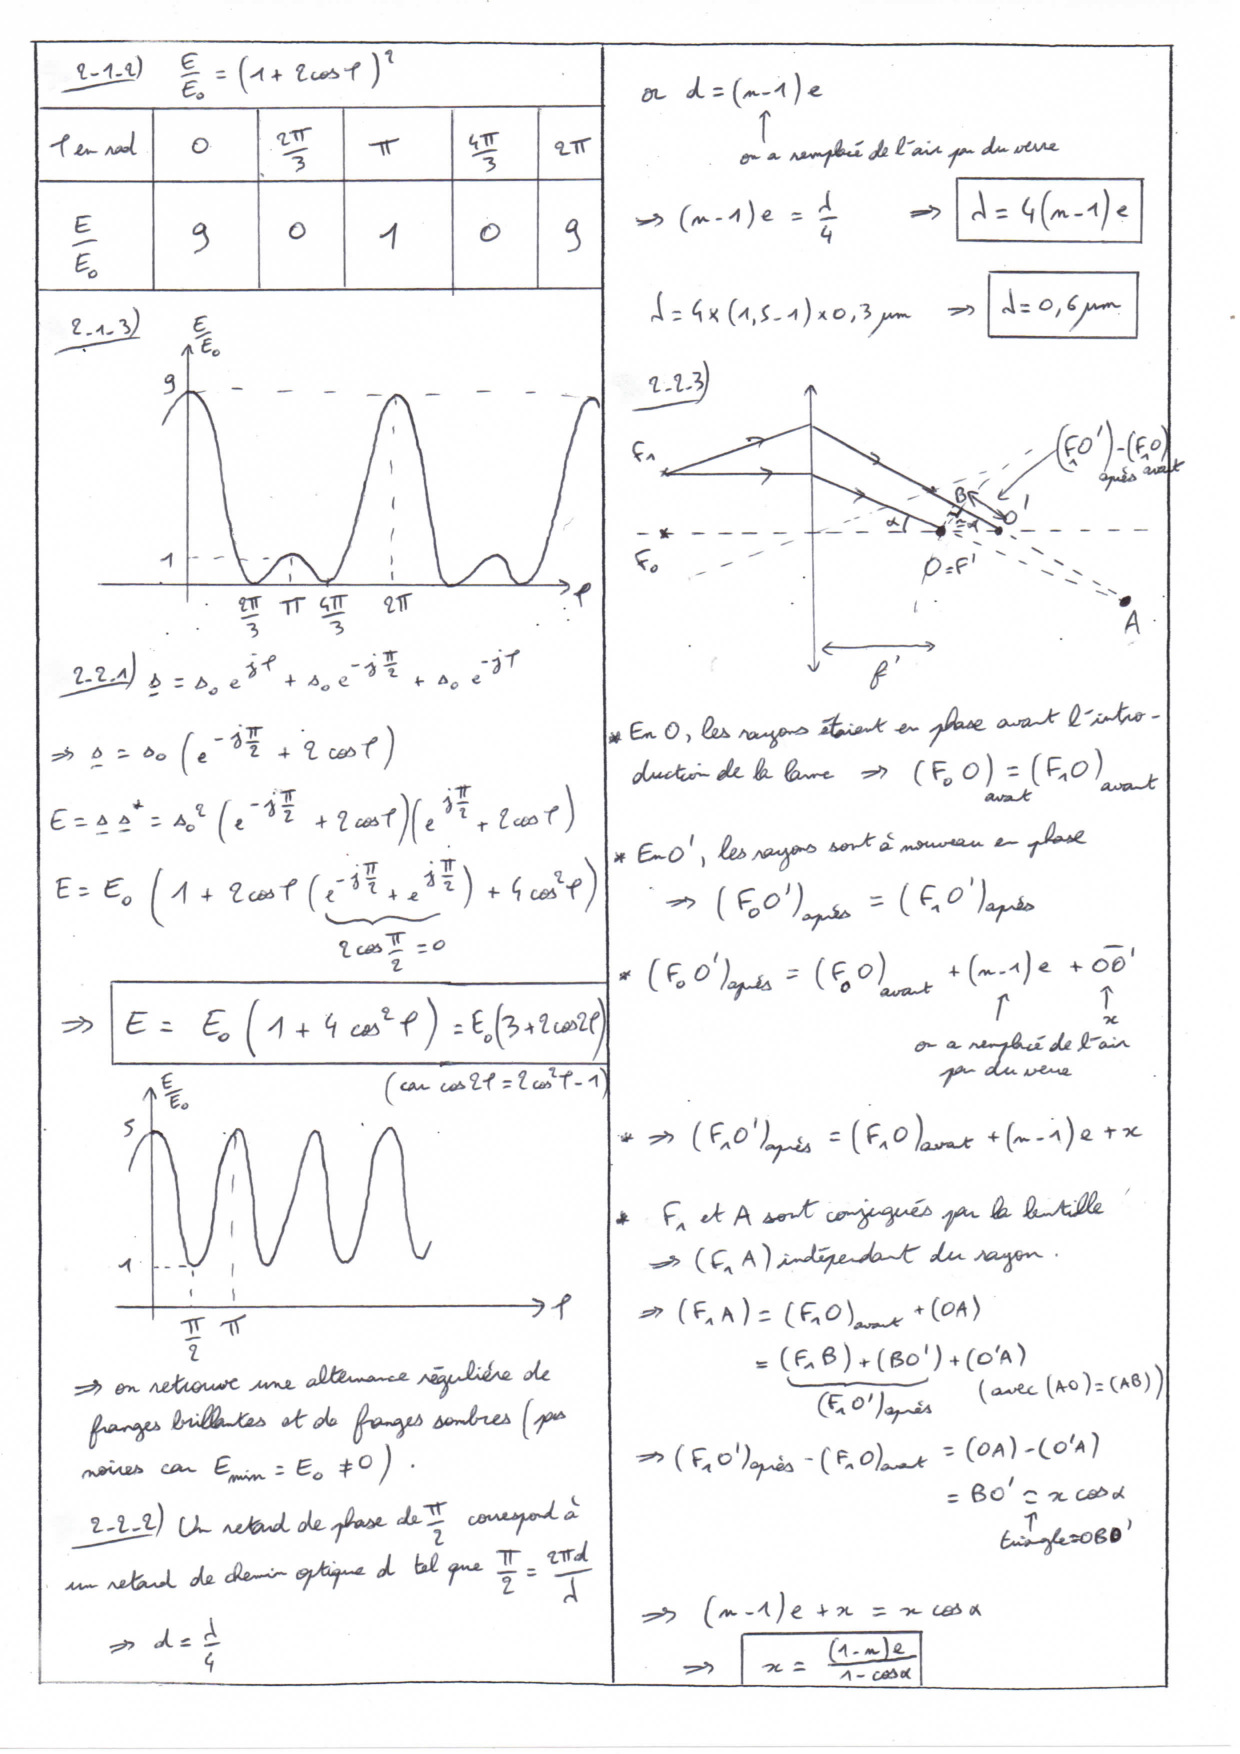 2-1-2) E/E₀ = (1 + 2cos φ)²
φ en rad | 0 | 2π/3 | π | 4π/3 | 2π
E/E₀ | 9 | 0 | 1 | 0 | 9
2-1-3)
E/E₀
9
1
2π/3 π 4π/3 2π φ
2-2-1) s = s₀ e^{jφ} + s₀ e^{-jπ/2} + s₀ e^{-jφ}
⇒ s = s₀ (e^{-jπ/2} + 2 cos φ)
E = s s* = s₀² (e^{-jπ/2} + 2 cos φ)(e^{jπ/2} + 2 cos φ)
E = E₀ (1 + 2 cos φ (e^{-jπ/2} + e^{jπ/2}) + 4 cos² φ)
2 cos π/2 = 0
⇒ E = E₀ (1 + 4 cos² φ) = E₀(3 + 2cos2φ)
(car cos 2φ = 2cos²φ - 1)
E/E₀
5
1
π/2 π φ
⇒ on retrouve une alternance régulière de
franges brillantes et de franges sombres (pas
noires car E min = E₀ ≠ 0).
2-2-2) Un retard de phase de π/2 correspond à
un retard de chemin optique d tel que π/2 = 2πd/λ
⇒ d = λ/4
or d = (n-1) e
↑
on a remplacé de l'air par du verre
⇒ (n-1) e = λ/4 ⇒ λ = 4(n-1) e
λ = 4 × (1,5-1) × 0,3 µm ⇒ λ = 0,6 µm
2-2-3)
F₁
(F₁O')après - (F₁O)avant
B
O'
α
≃α
F₀
O=F'
A
f'
* En O, les rayons étaient en phase avant l'intro-
duction de la lame ⇒ (F₀O)avant = (F₁O)avant
* En O', les rayons sont à nouveau en phase
⇒ (F₀O')après = (F₁O')après
* (F₀O')après = (F₀O)avant + (n-1) e + OO'
↑ ↑
x
on a remplacé de l'air
par du verre
* ⇒ (F₁O')après = (F₁O)avant + (n-1) e + x
* F₁ et A sont conjugués par la lentille
⇒ (F₁A) indépendant du rayon.
⇒ (F₁A) = (F₁O)avant + (OA)
= (F₁B) + (BO') + (O'A)
(F₁O')après (avec (AO) = (AB))
⇒ (F₁O')après - (F₁O)avant = (OA) - (O'A)
= BO' ≃ x cos α
↑
triangle OBO'
⇒ (n-1) e + x = x cos α
⇒ x = (1-n)e / 1-cosα